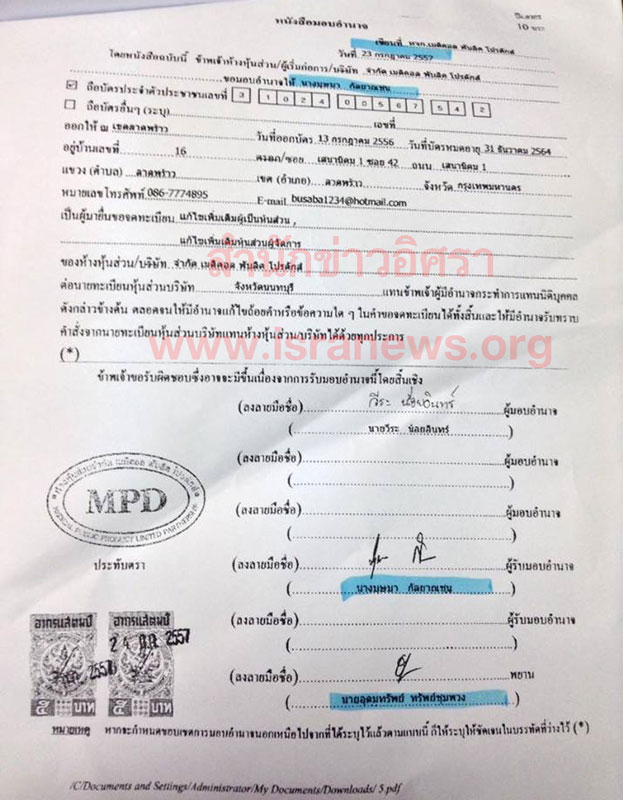 หนังสือมอบอำนาจ
ปิดอากร
10 บาท
เขียนที่ หจก.เมดิคอล พับลิค โปรดักส์
วันที่ 23 กรกฎาคม 2557
โดยหนังสือฉบับนี้ ข้าพเจ้าห้างหุ้นส่วน/ผู้เริ่มก่อการ/บริษัท จำกัด เมดิคอล พับลิค โปรดักส์
ขอมอบอำนาจให้ นางบุษบา กัลยาณชน
ถือบัตรประจำตัวประชาชนเลขที่ 3 1024 00567 54 2
ถือบัตรอื่นๆ (ระบุ) เลขที่
ออกให้ ณ เขตลาดพร้าว วันที่ออกบัตร 13 กรกฎาคม 2556 วันที่บัตรหมดอายุ 31 ธันวาคม 2564
อยู่บ้านเลขที่ 16 ตรอก/ซอย เสนานิคม 1 ซอย 42 ถนน เสนานิคม 1
แขวง (ตำบล) ลาดพร้าว เขต (อำเภอ) ลาดพร้าว จังหวัด กรุงเทพมหานคร
หมายเลขโทรศัพท์ 086-7774895 E-mail busaba1234@hotmail.com
เป็นผู้มายื่นขอจดทะเบียน แก้ไขเพิ่มเติมผู้เป็นหุ้นส่วน ,
แก้ไขเพิ่มเติมหุ้นส่วนผู้จัดการ
ของห้างหุ้นส่วน/บริษัท จำกัด เมดิคอล พับลิค โปรดักส์
สำนักข่าวอิศรา
ต่อนายทะเบียนหุ้นส่วนบริษัท จังหวัดนนทบุรี แทนข้าพเจ้าผู้มีอำนาจกระทำการแทนนิติบุคคล
ดังกล่าวข้างต้น ตลอดจนให้มีอำนาจแก้ไขถ้อยคำหรือข้อความใด ๆ ในคำขอจดทะเบียนได้ทั้งสิ้นและให้มีอำนาจรับทราบ
คำสั่งจากนายทะเบียนหุ้นส่วนบริษัทแทนห้างหุ้นส่วน/บริษัทได้ด้วยทุกประการ
www.isranews.org
(*)
ข้าพเจ้าขอรับผิดชอบซึ่งอาจจะมีขึ้นเนื่องจากการรับมอบอำนาจนี้โดยสิ้นเชิง
(ลงลายมือชื่อ) วีระ น้อยอินทร์ ผู้มอบอำนาจ
( นายวีระ น้อยอินทร์ )
(ลงลายมือชื่อ) ผู้มอบอำนาจ
( )
(ลงลายมือชื่อ) ผู้มอบอำนาจ
( )
ห้างหุ้นส่วนจำกัด เมดิคอล พับลิค โปรดักส์
MPD
MEDICAL PUBLIC PRODUCT LIMITED PARTNERSHIP
ประทับตรา
(ลงลายมือชื่อ) ผู้รับมอบอำนาจ
( นางบุษบา กัลยาณชน )
(ลงลายมือชื่อ) ผู้รับมอบอำนาจ
( )
(ลงลายมือชื่อ) พยาน
( นายอุดมทรัพย์ ทรัพย์ชุมพวง )
อากรแสตมป์ อากรแสตมป์
2557 24 2557
๕ บาท ๕ บาท
หมายเหตุ หากจะกำหนดขอบเขตการมอบอำนาจนอกเหนือไปจากที่ได้ระบุไว้แล้วตามแบบนี้ ก็ให้ระบุให้ชัดเจนในบรรทัดที่ว่างไว้ (*)
/C/Documents and Settings/Administrator/My Documents/Downloads/ 5.pdf